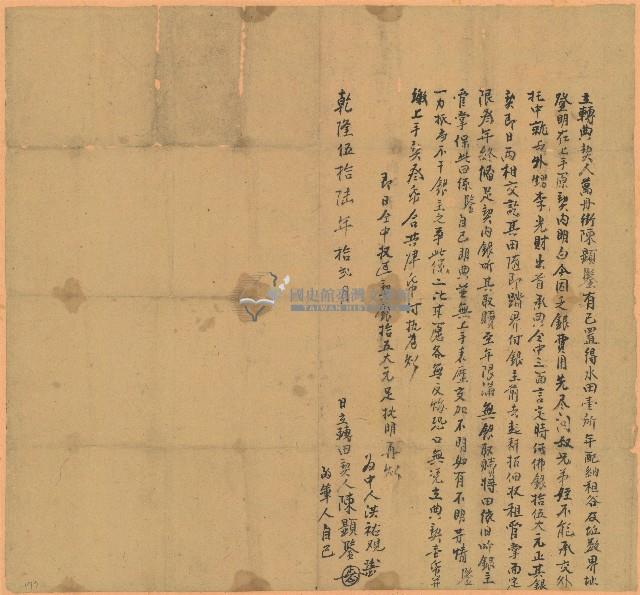 立轉典契人萬丹街陳顯鑒有己置得水田壹所年配納租谷及坵數界址
登明在上手原契內明白今因乏銀費用先尽问叔兄弟姪不能承交外
托中就与外甥李光財出首承典仝中三面言定時值佛銀拾伍大元正其銀
契即日两相交訖其田随即踏界付銀主前去起耕招佃收租管掌面定
限 年終備足契內銀听其取贖至年限滿無銀取贖将田依旧听銀主
管掌保此田係鑒自己明典並無上手来歷交加不明如有不明等情鑒
一力抵当不干銀主之事此係二比甘愿各無反悔恐口無凭立典契壹帋并
繳上手契 帋合共肆帋付执為炤
即日仝中收過契銀拾五大元足批明再炤
為中人洪 观
乾隆伍拾陆年拾弍月 日立轉田契人陳顯鑒
為筆人自己
國史館臺灣文獻館
TAIWAN HISTORICA